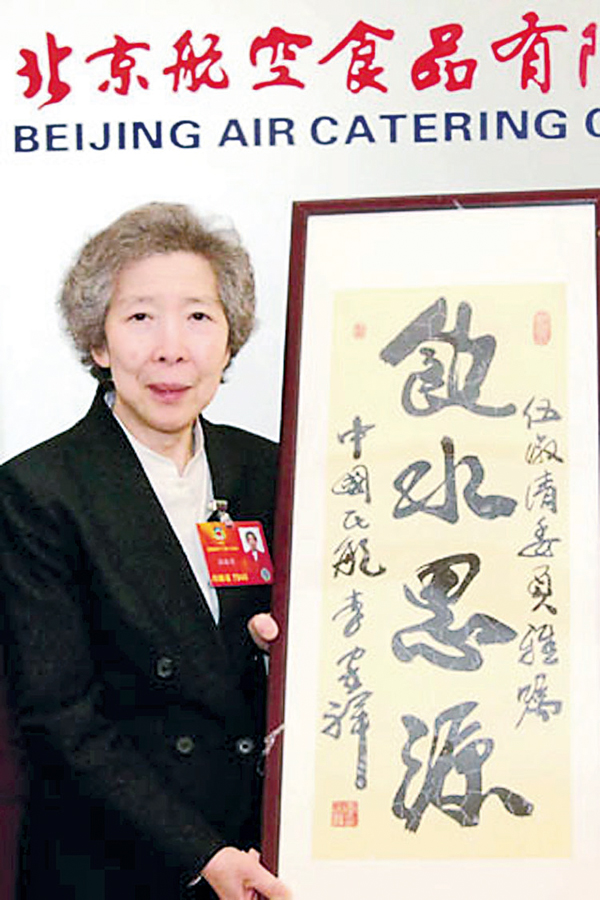 北京航空食品有
BEIJING AIR CATERING C
飲水思源
伍淑清委員雅囑
中國民航李家祥